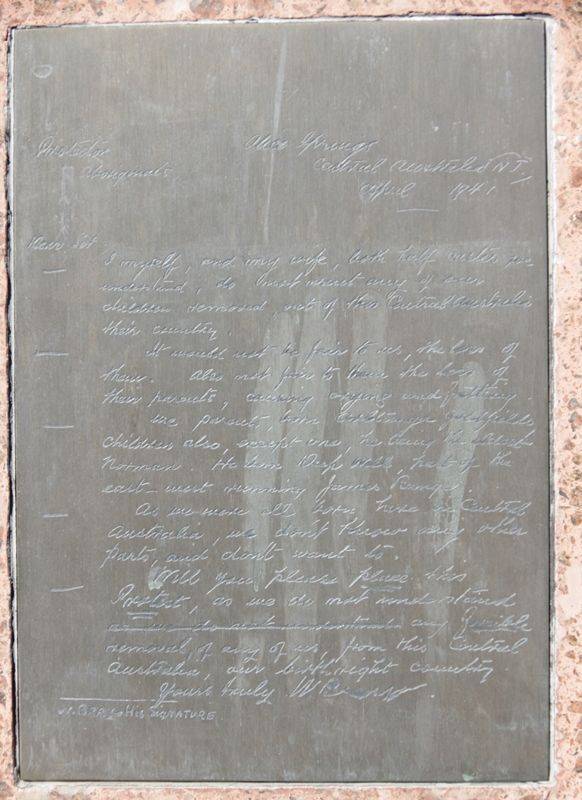 Protector
Aboriginals
Alice Springs
Central Australia N.T.
April 1941
Dear Sir
I myself, and my wife, both half castes we
understand, do not want any of our
children removed, out of this Central Australia
their country.
It would not be fair to us, the loss of
them. Also not fair to them the loss of
their parents, causing crying and fretting.
We parents born Arltunga goldfields
children also, except one he being the eldest
Norman. He born Deep Well, the
east-west running James Range.
As we were all born here in Central
Australia, we don't know any other
parts, and don't want to.
Will you please place this
Protest, as we do not understand
as we do not understand any forcible
removal, of any of us, from this Central
Australia, our birthright country
Yours truly W Bray.
W. BRAY - HIS SIGNATURE